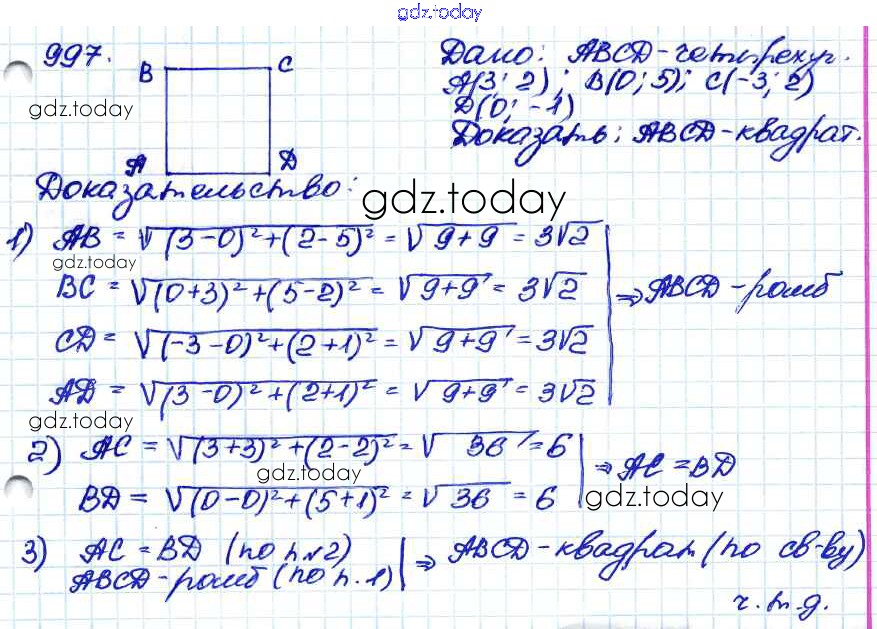 gdz.today
997.
B C
A D
Дано: ABCD-четырехуг.
A(3; 2); B(0; 5); C(-3; 2)
D(0; -1)
Доказать: ABCD-квадрат.
gdz.today
Доказательство:
gdz.today
1) AB = √(3-0)²+(2-5)² = √9+9 = 3√2
gdz.today
BC = √(0+3)²+(5-2)² = √9+9 = 3√2
CD = √(-3-0)²+(2+1)² = √9+9 = 3√2
AD = √(3-0)²+(2+1)² = √9+9 = 3√2
⇒ ABCD-ромб
gdz.today
2) AC = √(3+3)²+(2-2)² = √36 = 6
gdz.today
BD = √(0-0)²+(5+1)² = √36 = 6
⇒ AC = BD
gdz.today
3) AC = BD (по п.2)
ABCD-ромб (по п.1)
⇒ ABCD-квадрат (по св-ву)
ч.т.д.
gdz.today